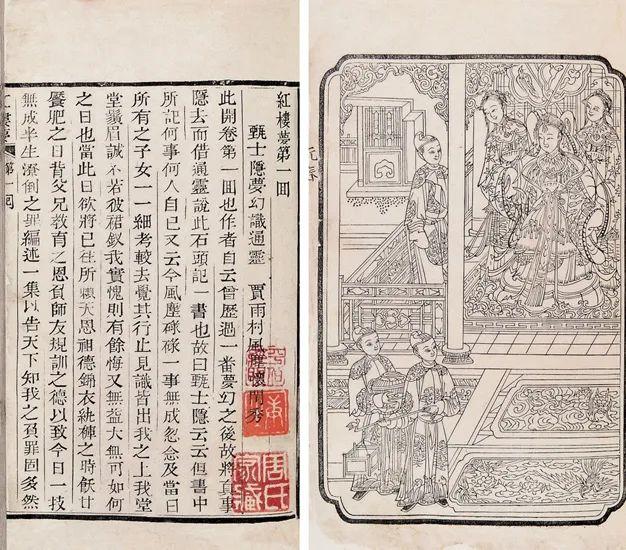 紅樓夢第一回
甄士隱夢幻識通靈 賈雨村風塵懷閨秀
此開卷第一回也作者自云曾歷過一番夢幻之後故將真事
隱去而借通靈說此石頭記一書也故曰甄士隱云云但書中
所記何事何人自己又云今風塵碌碌一事無成忽念及當日
所有之子女一一細考較去覺其行止見識皆出我之上我堂
堂鬚眉誠不若彼裙釵我實愧則有餘悔又無益大無可如何
之日也當此日欲將已往所賴天恩祖德錦衣紈褲之時飫甘
饜肥之日背父兄教育之恩負師友規訓之德以致今日一技
無成半生潦倒之罪編述一集以告天下知我之負罪固多然
紅樓夢 第一回
周氏家藏
元春